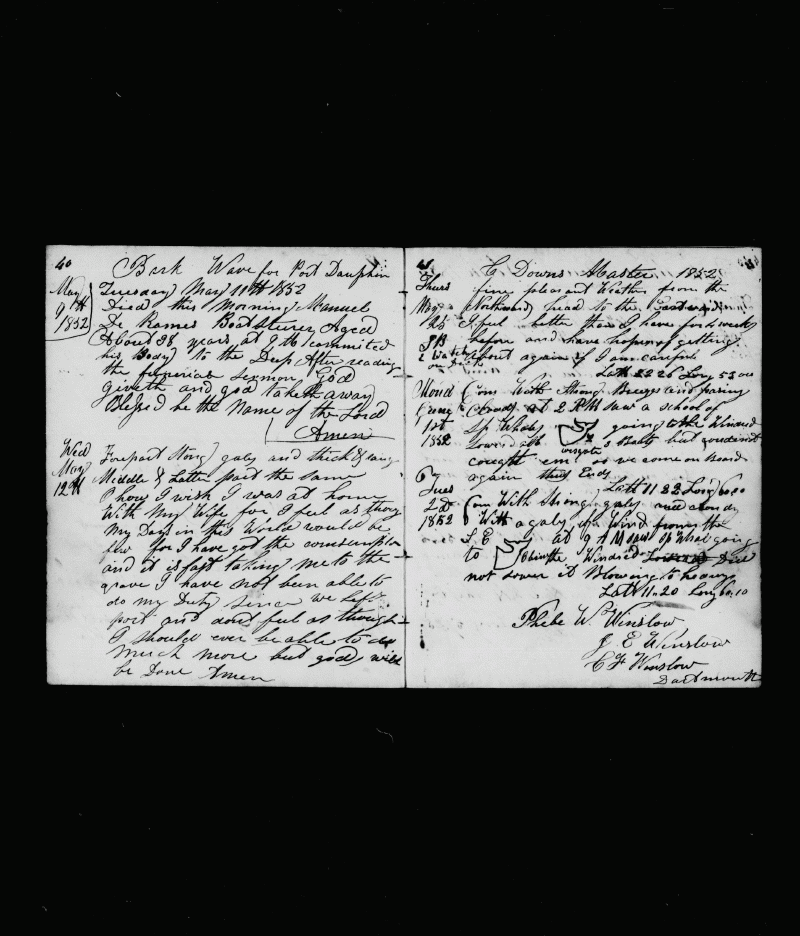 40
Bark Wave for Port Dauphin
May
9th
1852
Tuesday May 11th 1852
Died this Morning Manuel
De Ramos Boatsteerer Aged
About 28 years at 9 he committed
his Body to the Deep After reading
the funeral sermon God
giveth and god taketh away
Blessed be the Name of the Lord
Amen
Wed
May
12th
Forepart Strong gales and thick & rany
Middle & Latter part the Same
O how I wish I was at home
With My Wife for I feel as thoug
My Days in this World would be
few for I have got the comsumption
and it is fast taking me to the
grave I have not been able to
do my Duty sence we left
port and dont feel as though
I should ever be able to do
much more but gods will
be Done Amen
41
C Downs Master 1852
Thurs
May
fine pleasant Weather from the
Northward head to the Eastward
I feel better than I have for weeks
before and have hopes of getting
about again if I am carefull
2 Watch
on Deck
Latt 22 26 Long 53 00
Mond
June
1st
1852
Com With Strong Breezes and
clouds at 2 PM saw a school of
Sp Whales going to the Windard
Lowered 3 Boats but could not
caught em so we come on Board
again thus Ends
Latt 11 23 Long 60.00
Tues
2d
1852
Com With Strong gales and cloudy
With a galey Wind from the
S.E. at 9 AM going
to the Windard Did
not Lower it Blowing to heavy
Latt 11.20 Long 60.10
Phebe W. Winslow
J E Winslow
C F Winslow
Dartmouth